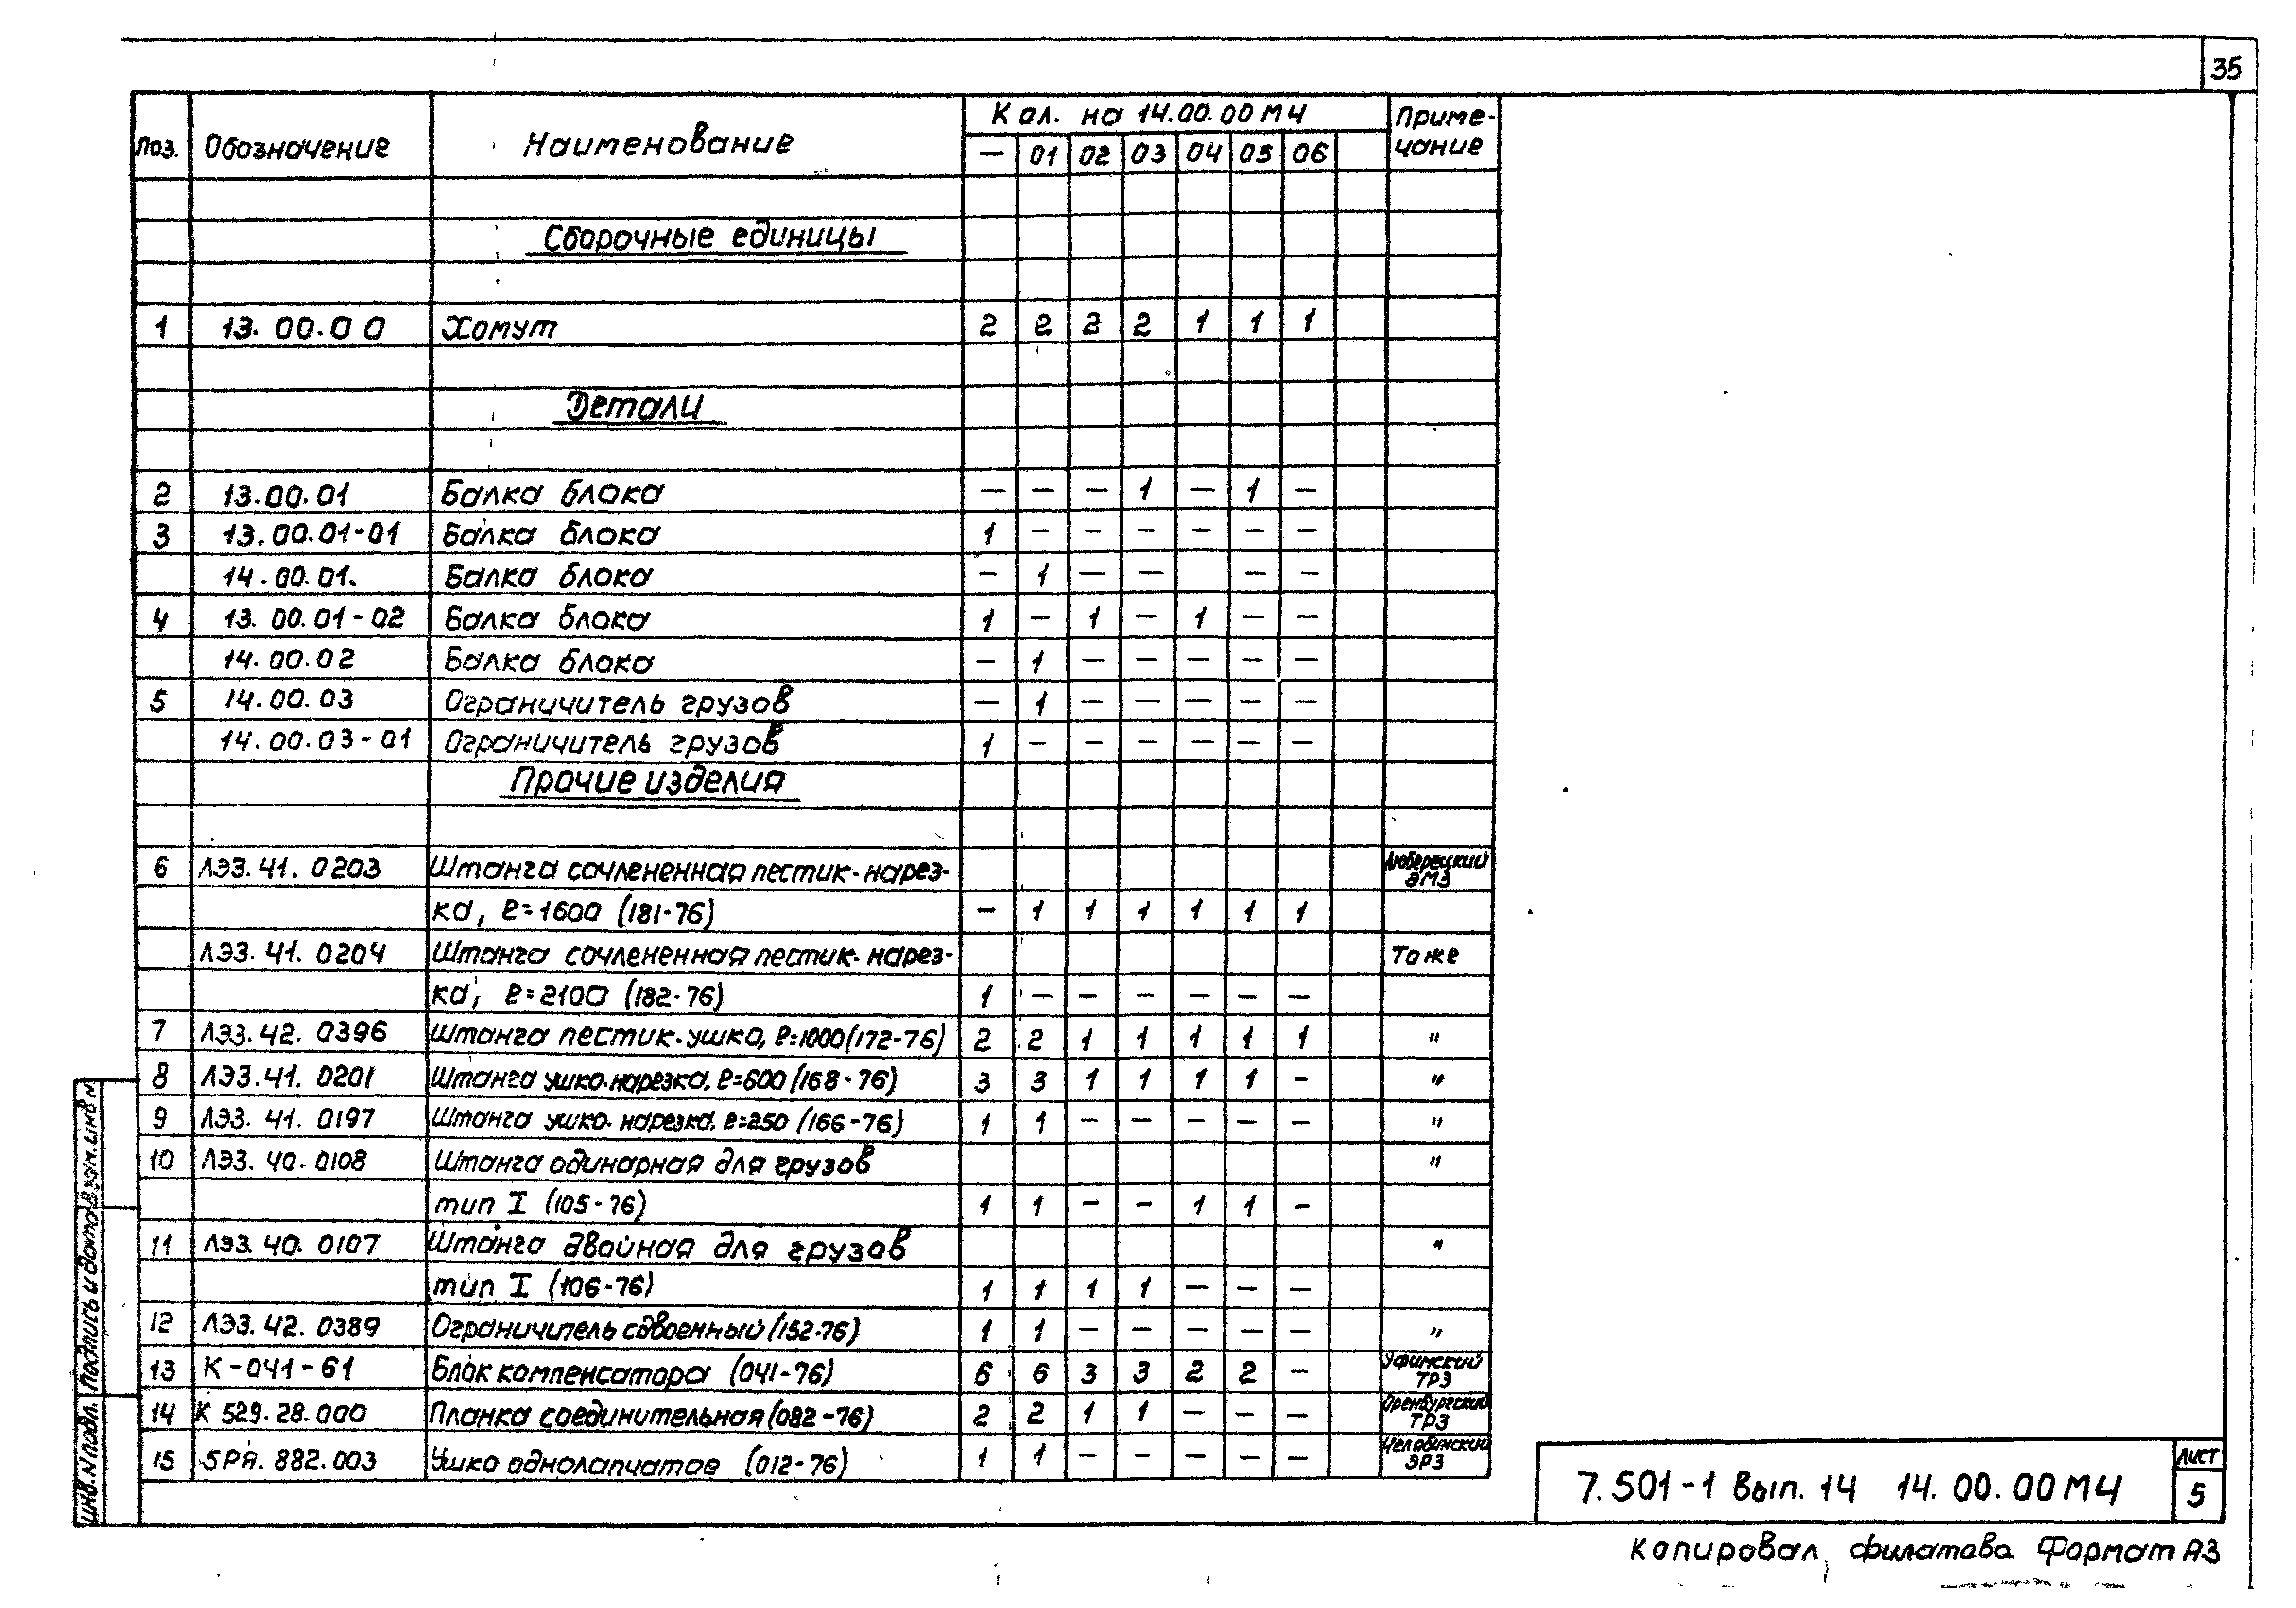 35
Поз. Обозначение Наименование Кол. на 14.00.00МЧ Приме-
чание
— 01 02 03 04 05 06
Сборочные единицы
1 13.00.00 Хомут 2 2 2 2 1 1 1
Детали
2 13.00.01 Балка блока — — — 1 — 1 —
3 13.00.01-01 Балка блока 1 — — — — — —
14.00.01. Балка блока — 1 — — — —
4 13.00.01-02 Балка блока 1 — 1 — 1 — —
14.00.02 Балка блока — 1 — — — — —
5 14.00.03 Ограничитель грузов — 1 — — — — —
14.00.03-01 Ограничитель грузов 1 — — — — — —
Прочие изделия
6 ЛЭЗ.41.0203 Штанга сочлененная пестик-нарез- Люберецкий
ЭМЗ
ка, ℓ=1600 (181-76) — 1 1 1 1 1 1
ЛЭЗ.41.0204 Штанга сочлененная пестик-нарез- То же
ка, ℓ=2100 (182-76) 1 — — — — — —
7 ЛЭЗ.42.0396 Штанга пестик-ушко, ℓ=1000(172-76) 2 2 1 1 1 1 1 "
8 ЛЭЗ.41.0201 Штанга ушко-нарезка, ℓ=600 (168-76) 3 3 1 1 1 1 — "
9 ЛЭЗ.41.0197 Штанга ушко-нарезка, ℓ=250 (166-76) 1 1 — — — — — "
10 ЛЭЗ.40.0108 Штанга одинарная для грузов "
тип I (105-76) 1 1 — — 1 1 —
11 ЛЭЗ.40.0107 Штанга двойная для грузов "
тип I (106-76) 1 1 1 1 — — —
12 ЛЭЗ.42.0389 Ограничитель сдвоенный (152-76) 1 1 — — — — — "
13 К-041-61 Блок компенсатора (041-76) 6 6 3 3 2 2 — Уфимский
ТРЗ
14 К 529.28.000 Планка соединительная (082-76) 2 2 1 1 — — — Оренбургский
ТРЗ
15 5РЯ.882.003 Ушко однолапчатое (012-76) 1 1 — — — — — Челябинский
ЭРЗ
Инв.N подл. Подпись и дата Взам.инв N
7.501-1 Вып.14 14.00.00МЧ Лист
5
Копировал Филатова Формат А3